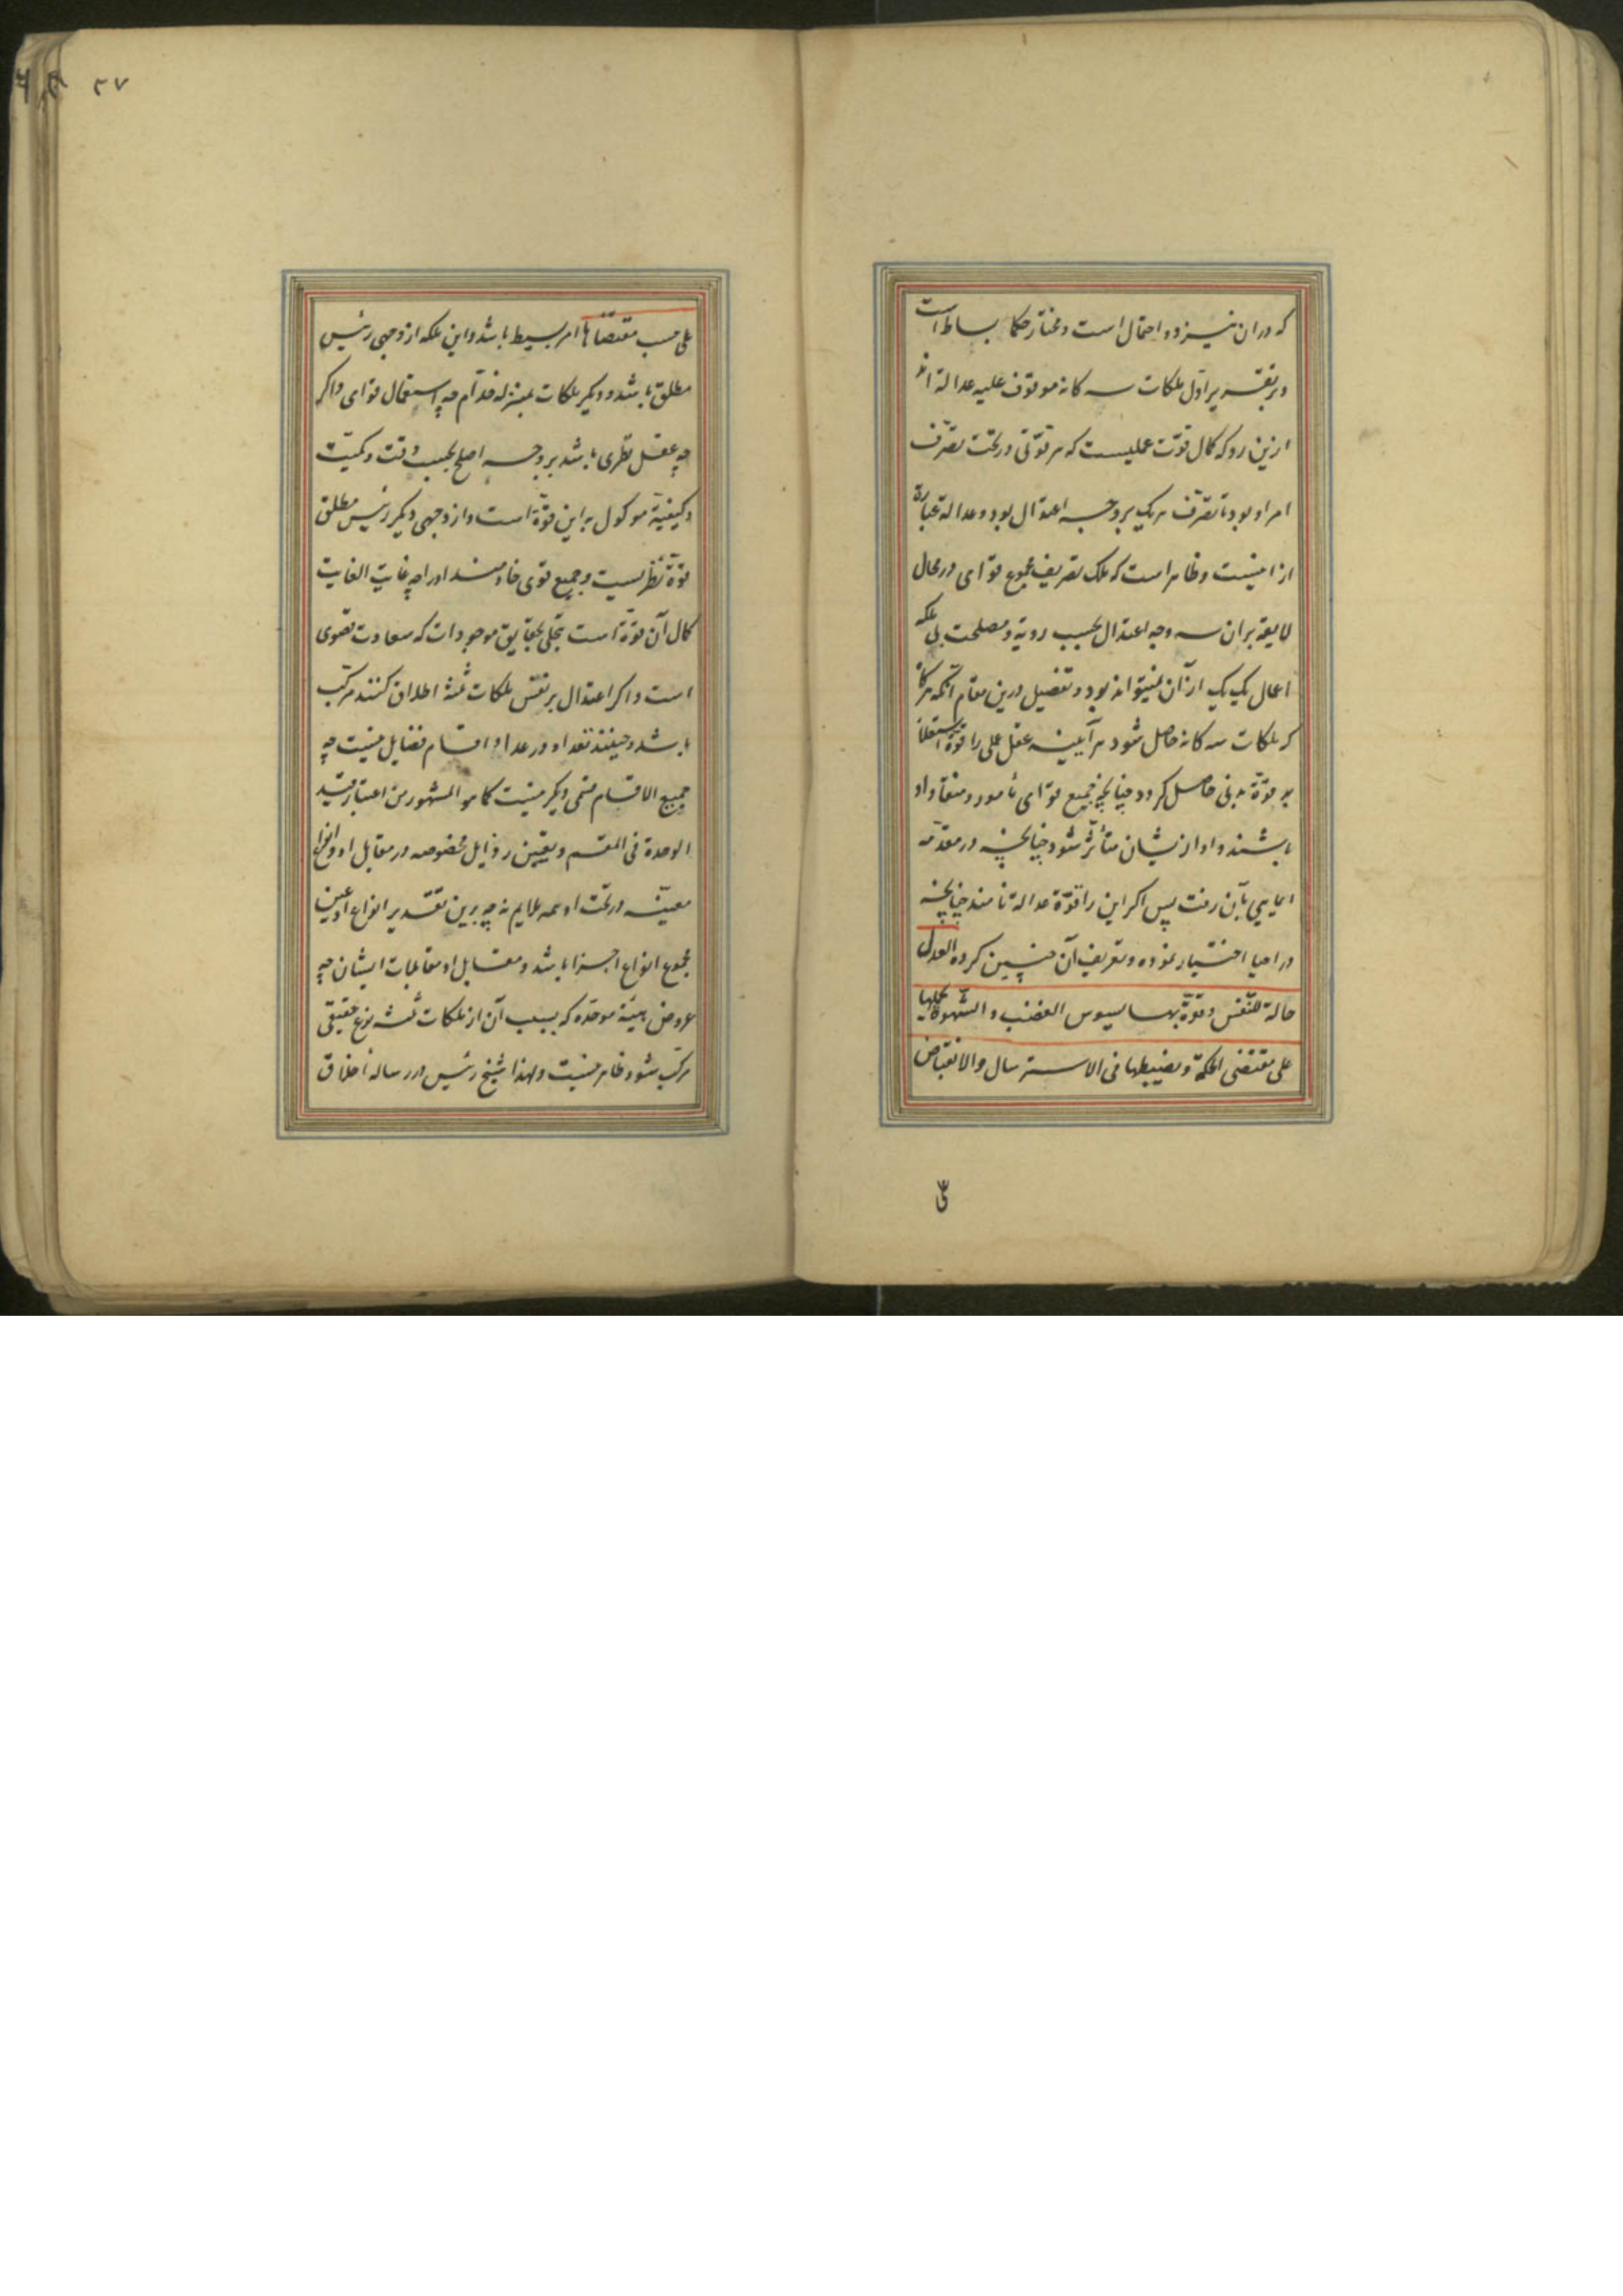 که در ان نیز دو احتمال است و مختار حکما بساطت است
و بر تقدیر اول ملکات سه کانه موقوف علیه عدالة اند
ازین رو که کمال قوّت عملیست که هر قوّتی در تحت تصرّف
امر او بود تا تصرّف هریک بر وجه اعتدال بود و عدالة عبارة
ازانیست و ظاهر است که ملکه تصریف مجموع قوای در محال
لایقه بران سه وجه اعتدال بحسب رویّة و مصلحت بی ملکه
اعمال یک یک از آن نمیتواند بود و تفصیل درین مقام آنکه هرکاه
که ملکات سه کانه حاصل شود هر آیینه عقل عملی را قوّة استعلا
بر قوّة بدنی حاصل کردد چنانچه جمیع قوای مأمور و منقاد او
باشند و او ازیشان متأثّر نشود چنانچه در مقدّمه
ایمایی بآن رفت پس اکر این را قوّة عدالة نامند چنانچه
در احیا اختیار نموده و تعریف آن چنین کرده العدل
حالة للنّفس و قوّة بها یسوس الغضب و الشّهوة و یحملها
علی مقتضی الحکمة و یضبطها فی الاسترسال و الانقباض
علی
۳۷
علی حسب مقتضاها امر بسیط باشد و این ملکه از وجهی رئیس
مطلق باشد و دیکر ملکات بمنزله خدّام چه استعمال قوای و اکر
چه عقل نظری باشد بر وجه اصلح بحسب وقت و کمیّت
و کیفیّة موکول به این قوّة است و از وجهی دیکر رئیس مطلق
قوّة نظریست و جمیع قوی خادمند اورا چه غایت الغایت
کمال آن قوّة است تجلی بحقایق موجودات که سعادت قصوی
است و اکر اعتدال بر نفس ملکات ثلثه اطلاق کنند مرکّب
باشد و حینئذ تعداد در عداد اقسام فضایل نیست چه
جمیع الاقسام قسمی دیکر نیست کما هو المشهور من اعتبار قید
الوحدة فی المقسم و تعیین رذایل مخصوصه در مقابل او و انواع
معیّنه در تحت او همه ملایم نه چه برین تقدیر انواع او عین
مجموع انواع اجزا باشد و مقابل او مقابلات ایشان چه
عروض هیئة موحّده که بسبب آن از ملکات ثلثه نوع حقیقی
مرکّب شود ظاهر نیست و لهذا شیخ رئیس در رساله اخلاق